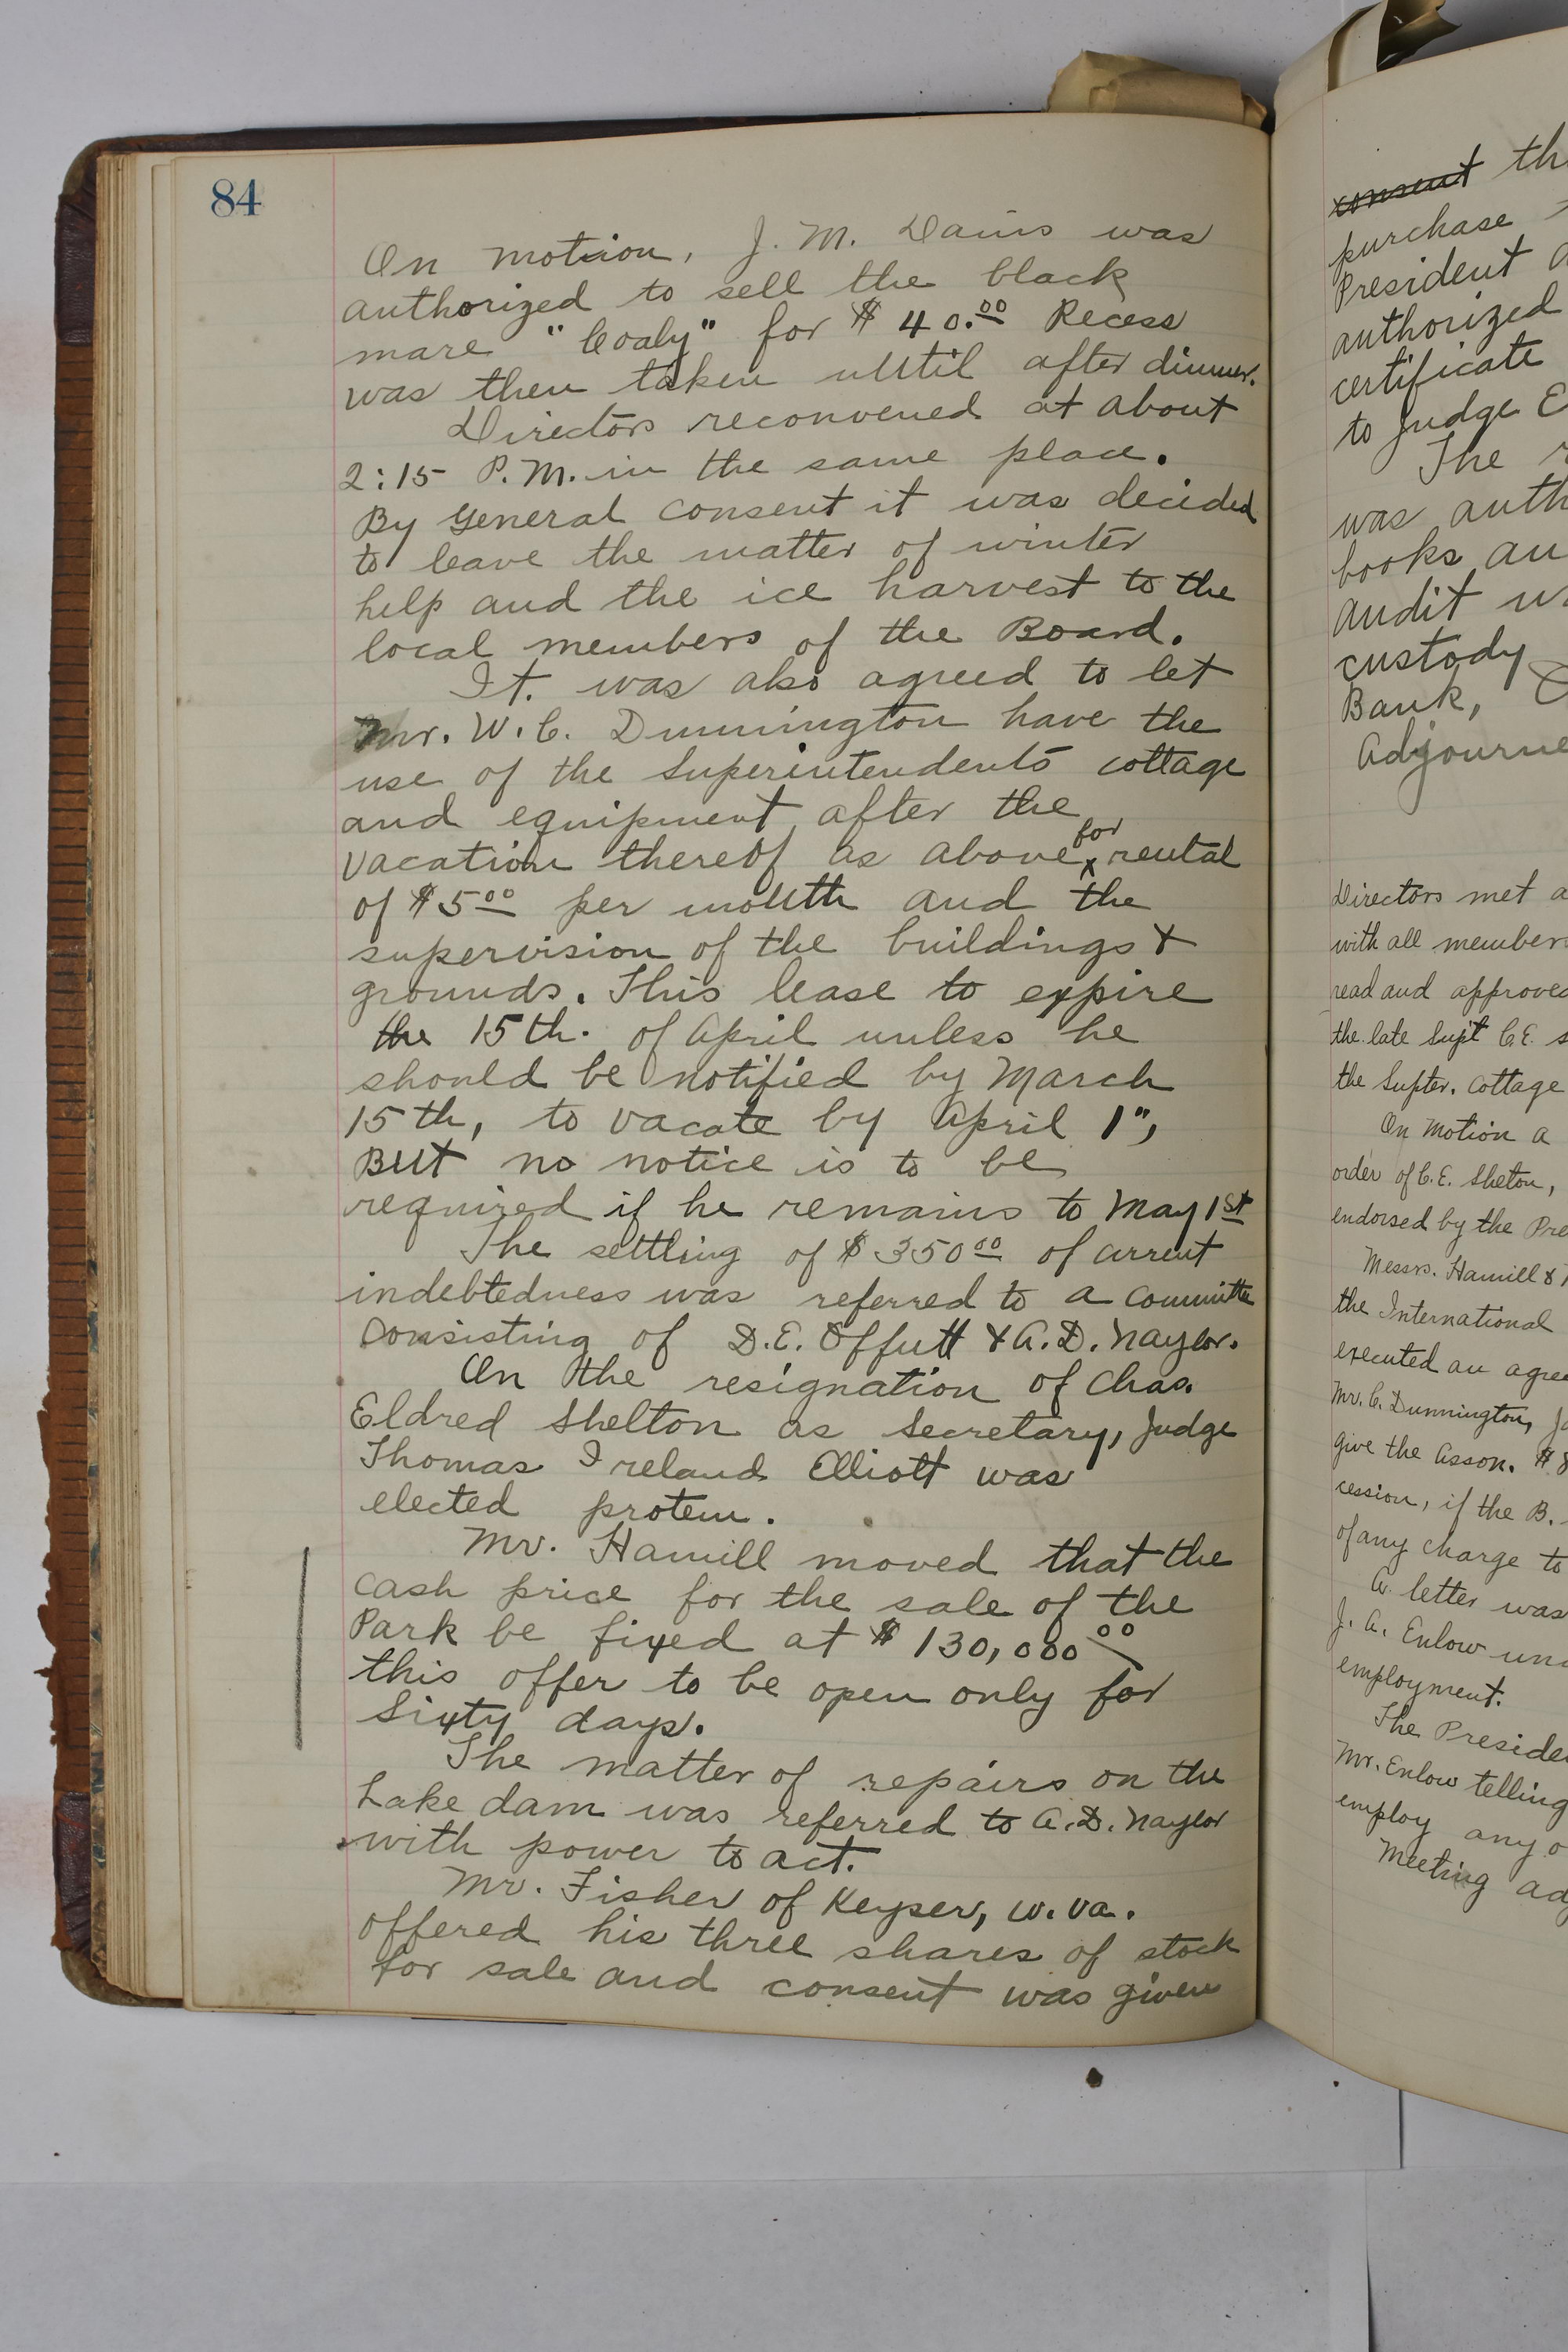 84
On motion, J. M. Davis was
authorized to sell the black
mare "Coaly" for $40.00 Recess
was then taken until after dinner.
Directors reconvened at about
2:15 P.M. in the same place.
By General consent it was decided
to leave the matter of winter
help and the ice harvest to the
local members of the Board.
It. was also agreed to let
Mr. W. C. Dunnington have the
use of the Superintendents cottage
and equipment after the
vacation thereof as above for rental
of $5.00 per month and the
supervision of the buildings &
grounds. This lease to expire
the 15th. of April unless he
should be notified by March
15th, to vacate by April 1",
But no notice is to be
required if he remains to May 1st
The settling of $350.00 of current
indebtedness was referred to a committee
consisting of D.E. Offutt & A.D. Naylor.
On the resignation of Chas.
Eldred Shelton as Secretary, Judge
Thomas Ireland Elliott was
elected protem.
Mr. Hamill moved that the
cash price for the sale of the
Park be fixed at $130,000.00
this offer to be open only for
Sixty days.
The matter of repairs on the
Lake dam was referred to A.D. Naylor
with power to act.
Mr. Fisher of Keyser, W. Va.
offered his three shares of stock
for sale and consent was given
consent
purchase
President
authorized
certificate
to Judge
The
was
books
audit
custody
Bank,
Directors met
with all
read and
the late Supt C.E.
the Supter. Cottage
On motion a
order of C.E. Shelton,
endorsed by the
Messrs. Hamill &
the International
executed an
Mr. C. Dunnington,
give the Asson. $
cession, if the B.
of any charge to
A letter was
J. A. Enlow
employment.
The
Mr. Enlow telling
employ any
Meeting